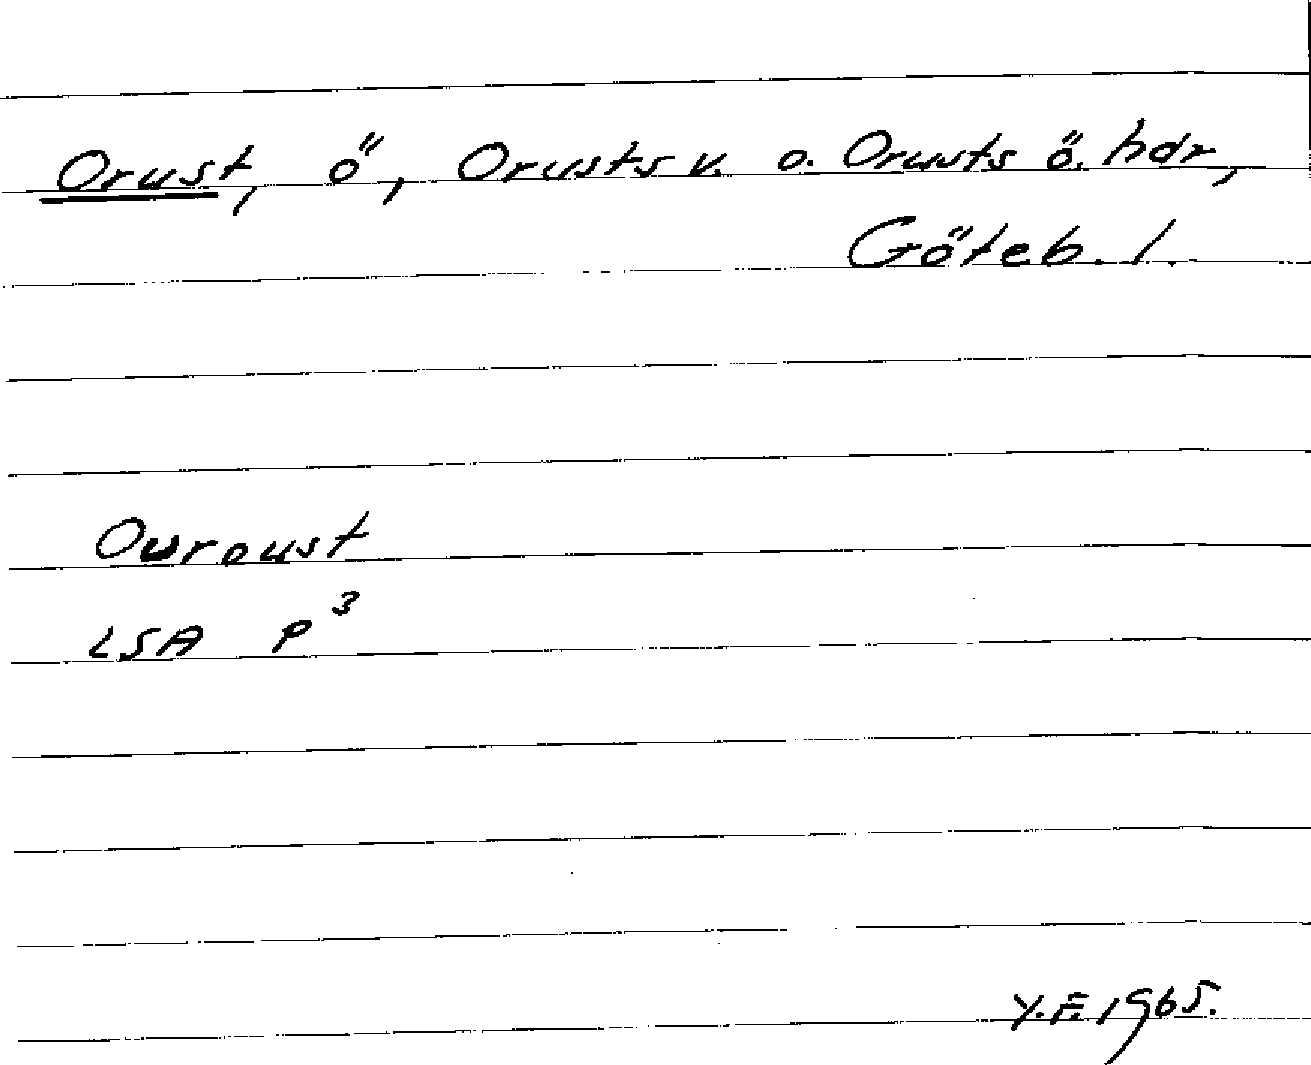 Orust, ö, Orusts v. o. Orusts ö. hdr,
Göteb. l.
Ouroust
LSA P³
Y.F. 1965.